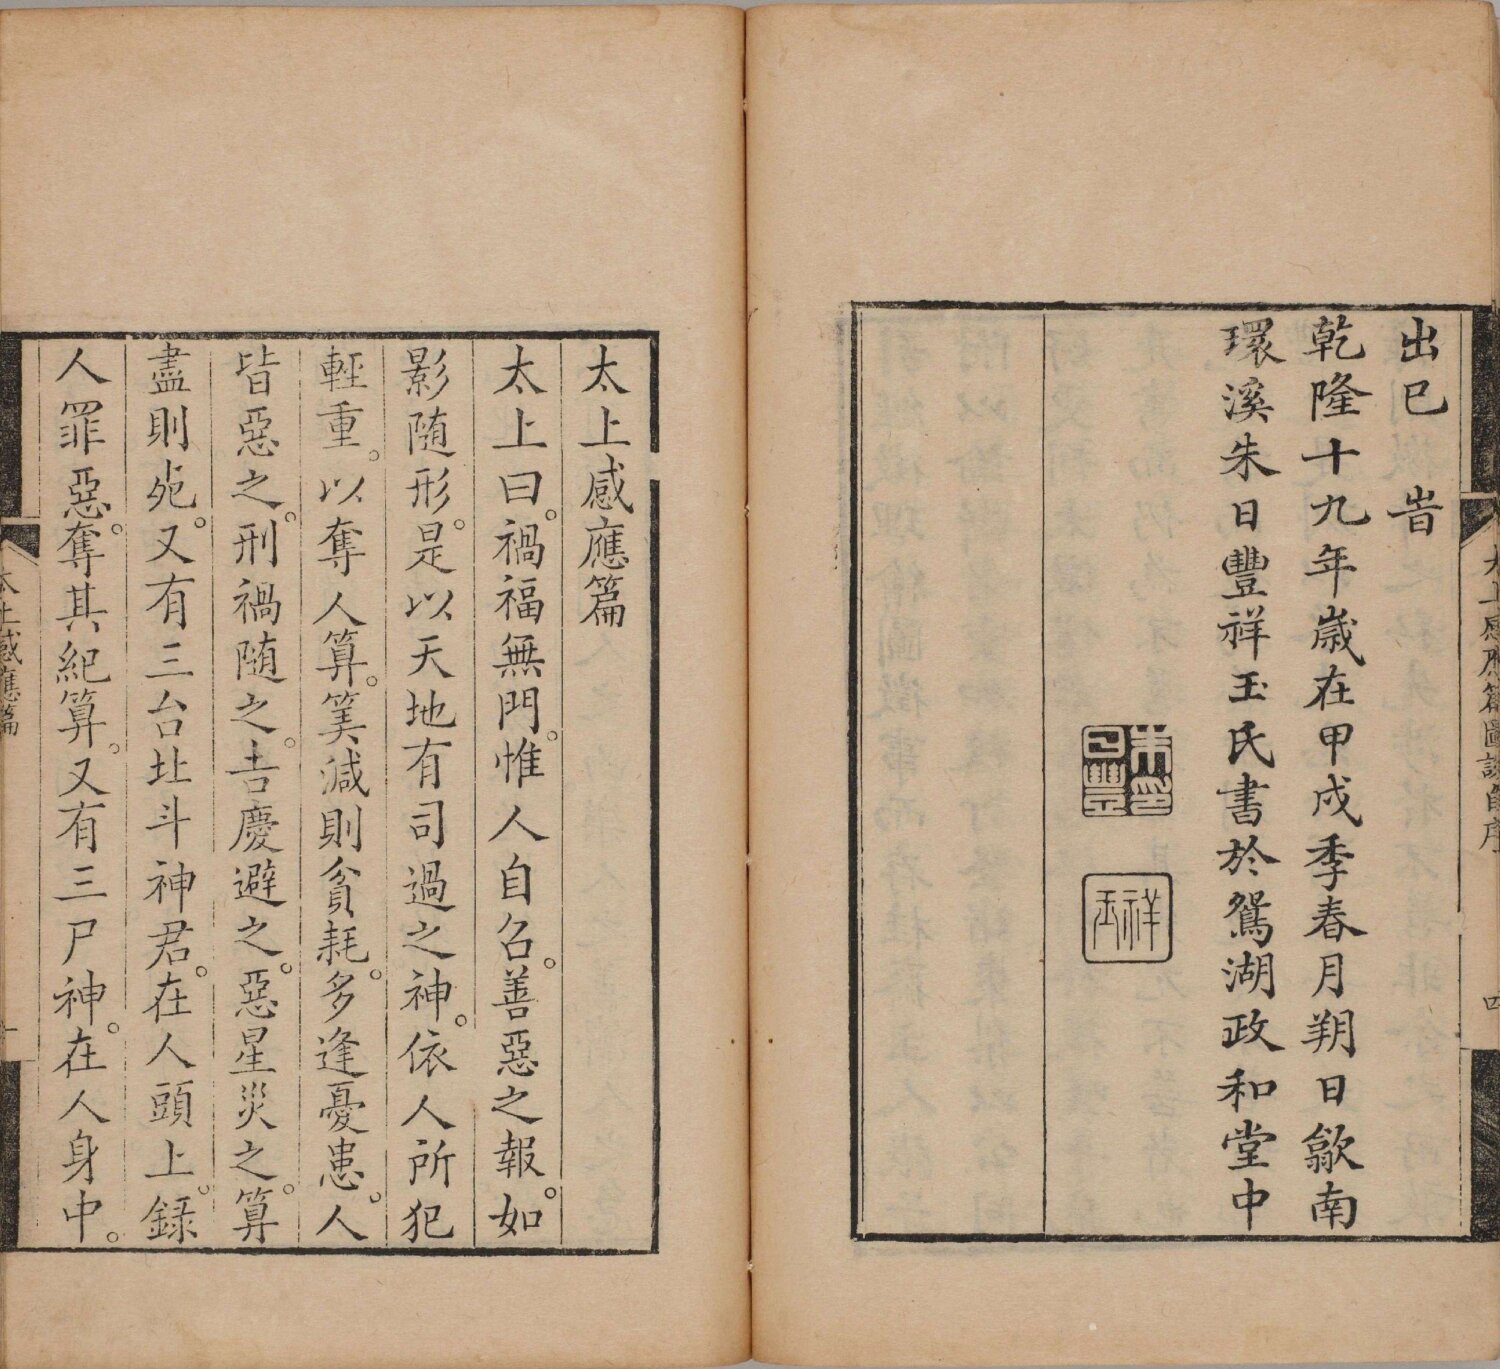 出已 旹
乾隆十九年歲在甲戌季春月朔日歙南
環溪朱日豐祥玉氏書於鴛湖政和堂中
朱印日豐
祥玉
太上感應篇圖說
序
四
太上感應篇
太上曰。禍福無門。惟人自召。善惡之報。如
影随形。是以天地有司過之神。依人所犯
輕重。以奪人算。筭減則貧耗。多逢憂患。人
皆惡之。刑禍随之。吉慶避之。惡星災之。算
盡則死。又有三台北斗神君。在人頭上。録
人罪惡。奪其紀算。又有三尸神。在人身中。
太上感應篇
一